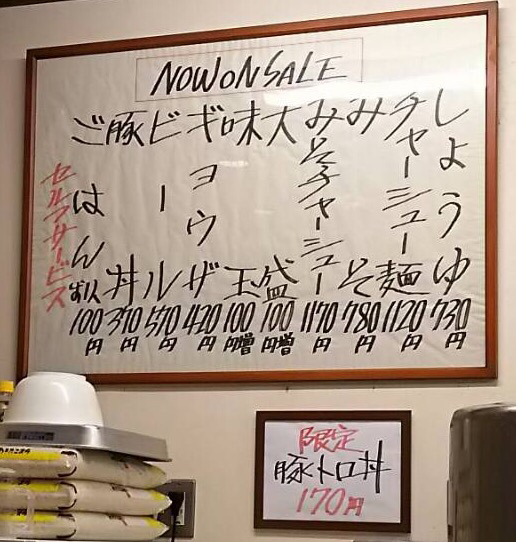 NOW ON SALE
しょうゆ 730円
チャーシュー麺 1120円
みそ 780円
みそチャーシュー 1170円
大盛 100円増
味玉 100円増
ギョウザ 420円
ビール 570円
豚丼 370円
ごはん お1人 100円
セルフサービス
限定
豚トロ丼
170円